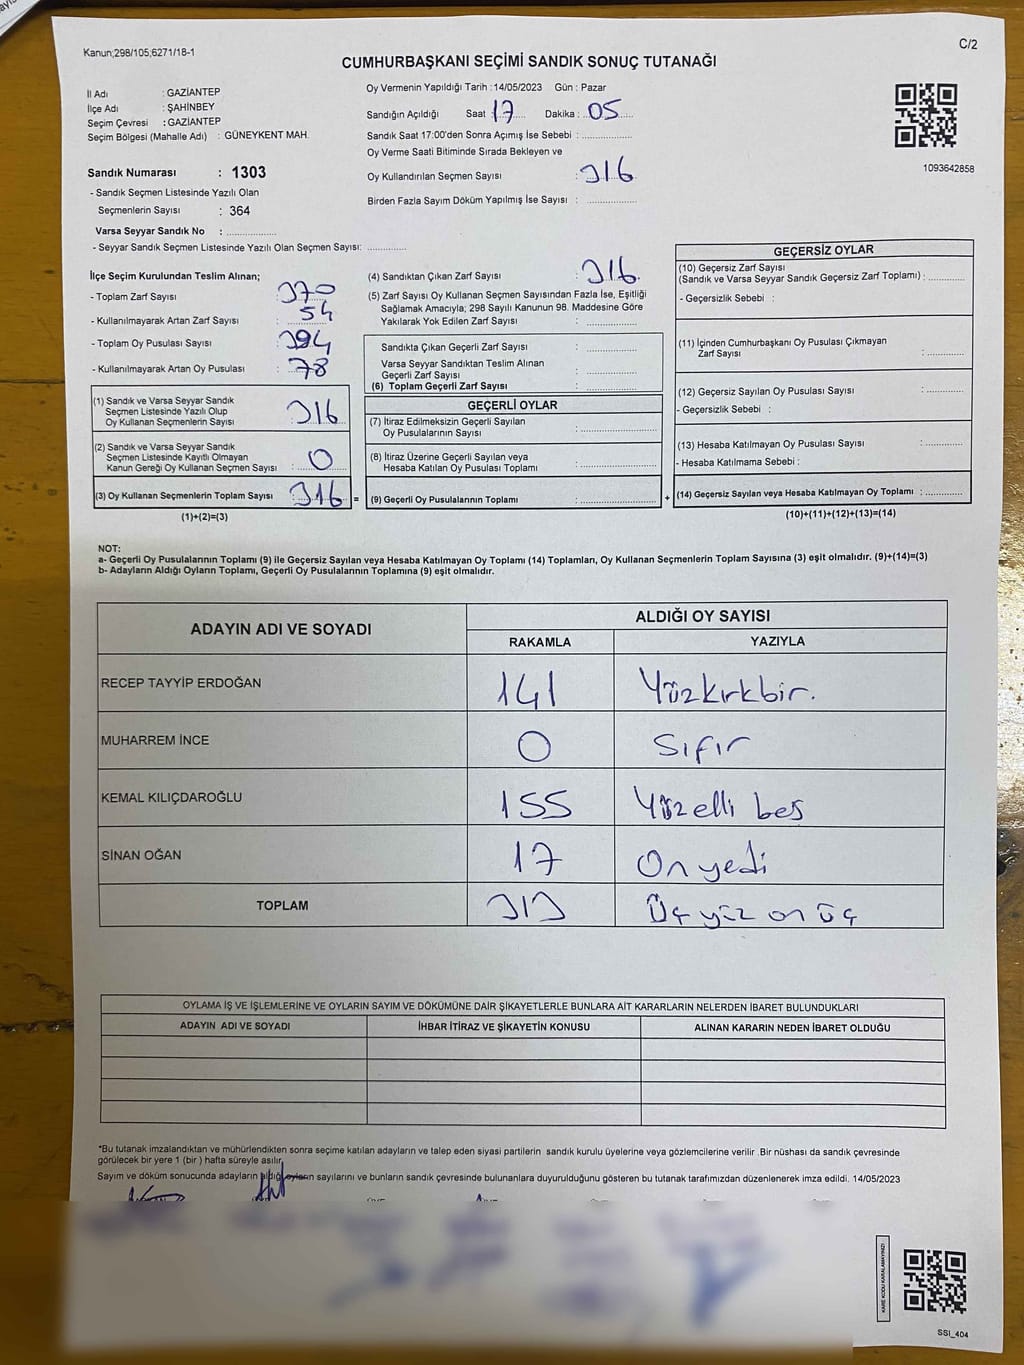 Kanun;298/105;6271/18-1
C/2
CUMHURBAŞKANI SEÇİMİ SANDIK SONUÇ TUTANAĞI
İl Adı : GAZİANTEP
İlçe Adı : ŞAHİNBEY
Seçim Çevresi : GAZİANTEP
Seçim Bölgesi (Mahalle Adı) : GÜNEYKENT MAH.
Sandık Numarası : 1303
- Sandık Seçmen Listesinde Yazılı Olan
Seçmenlerin Sayısı : 364
Varsa Seyyar Sandık No : ..................
- Seyyar Sandık Seçmen Listesinde Yazılı Olan Seçmen Sayısı: ..............
Oy Vermenin Yapıldığı Tarih : 14/05/2023 Gün : Pazar
Sandığın Açıldığı Saat : 17 Dakika : 05
Sandık Saat 17:00'den Sonra Açımış İse Sebebi : ..................
Oy Verme Saati Bitiminde Sırada Bekleyen ve
Oy Kullandırılan Seçmen Sayısı : 316
Birden Fazla Sayım Döküm Yapılmış İse Sayısı : ..................
1093642858
İlçe Seçim Kurulundan Teslim Alınan;
- Toplam Zarf Sayısı : 370
- Kullanılmayarak Artan Zarf Sayısı : 54
- Toplam Oy Pusulası Sayısı : 394
- Kullanılmayarak Artan Oy Pusulası : 78
(1) Sandık ve Varsa Seyyar Sandık
Seçmen Listesinde Yazılı Olup
Oy Kullanan Seçmenlerin Sayısı : 316
(2) Sandık ve Varsa Seyyar Sandık
Seçmen Listesinde Kayıtlı Olmayan
Kanun Gereği Oy Kullanan Seçmen Sayısı : 0
(3) Oy Kullanan Seçmenlerin Toplam Sayısı : 316 =
(1)+(2)=(3)
(4) Sandıktan Çıkan Zarf Sayısı : 316
(5) Zarf Sayısı Oy Kullanan Seçmen Sayısından Fazla İse, Eşitliği
Sağlamak Amacıyla; 298 Sayılı Kanunun 98. Maddesine Göre
Yakılarak Yok Edilen Zarf Sayısı : ..................
Sandıkta Çıkan Geçerli Zarf Sayısı : ..................
Varsa Seyyar Sandıktan Teslim Alınan
Geçerli Zarf Sayısı : ..................
(6) Toplam Geçerli Zarf Sayısı : ..................
GEÇERLİ OYLAR
(7) İtiraz Edilmeksizin Geçerli Sayılan
Oy Pusulalarının Sayısı : ..................
(8) İtiraz Üzerine Geçerli Sayılan veya
Hesaba Katılan Oy Pusulası Toplamı : ..................
(9) Geçerli Oy Pusulalarının Toplamı : .................. +
GEÇERSİZ OYLAR
(10) Geçersiz Zarf Sayısı
(Sandık ve Varsa Seyyar Sandık Geçersiz Zarf Toplamı) : ..............
- Geçersizlik Sebebi :
(11) İçinden Cumhurbaşkanı Oy Pusulası Çıkmayan
Zarf Sayısı : ..............
(12) Geçersiz Sayılan Oy Pusulası Sayısı : ..............
- Geçersizlik Sebebi :
(13) Hesaba Katılmayan Oy Pusulası Sayısı : ..............
- Hesaba Katılmama Sebebi :
(14) Geçersiz Sayılan veya Hesaba Katılmayan Oy Toplamı : ..............
(10)+(11)+(12)+(13)=(14)
NOT:
a- Geçerli Oy Pusulalarının Toplamı (9) ile Geçersiz Sayılan veya Hesaba Katılmayan Oy Toplamı (14) Toplamları, Oy Kullanan Seçmenlerin Toplam Sayısına (3) eşit olmalıdır. (9)+(14)=(3)
b- Adayların Aldığı Oyların Toplamı, Geçerli Oy Pusulalarının Toplamına (9) eşit olmalıdır.
ADAYIN ADI VE SOYADI ALDIĞI OY SAYISI
RAKAMLA YAZIYLA
RECEP TAYYİP ERDOĞAN 141 Yüzkırkbir.
MUHARREM İNCE 0 Sıfır
KEMAL KILIÇDAROĞLU 155 Yüzelli beş
SİNAN OĞAN 17 On yedi
TOPLAM 313 Üç yüz on üç
OYLAMA İŞ VE İŞLEMLERİNE VE OYLARIN SAYIM VE DÖKÜMÜNE DAİR ŞİKAYETLERLE BUNLARA AİT KARARLARIN NELERDEN İBARET BULUNDUKLARI
ADAYIN ADI VE SOYADI İHBAR İTİRAZ VE ŞİKAYETİN KONUSU ALINAN KARARIN NEDEN İBARET OLDUĞU
*Bu tutanak imzalandıktan ve mühürlendikten sonra seçime katılan adayların ve talep eden siyasi partilerin sandık kurulu üyelerine veya gözlemcilerine verilir .Bir nüshası da sandık çevresinde
görülecek bir yere 1 (bir ) hafta süreyle asılır.
Sayım ve döküm sonucunda adayların aldığı oyların sayılarını ve bunların sandık çevresinde bulunanlara duyurulduğunu gösteren bu tutanak tarafımızdan düzenlenerek imza edildi. 14/05/2023
KARE KODU KARALAMAYINIZ!
SSI_404